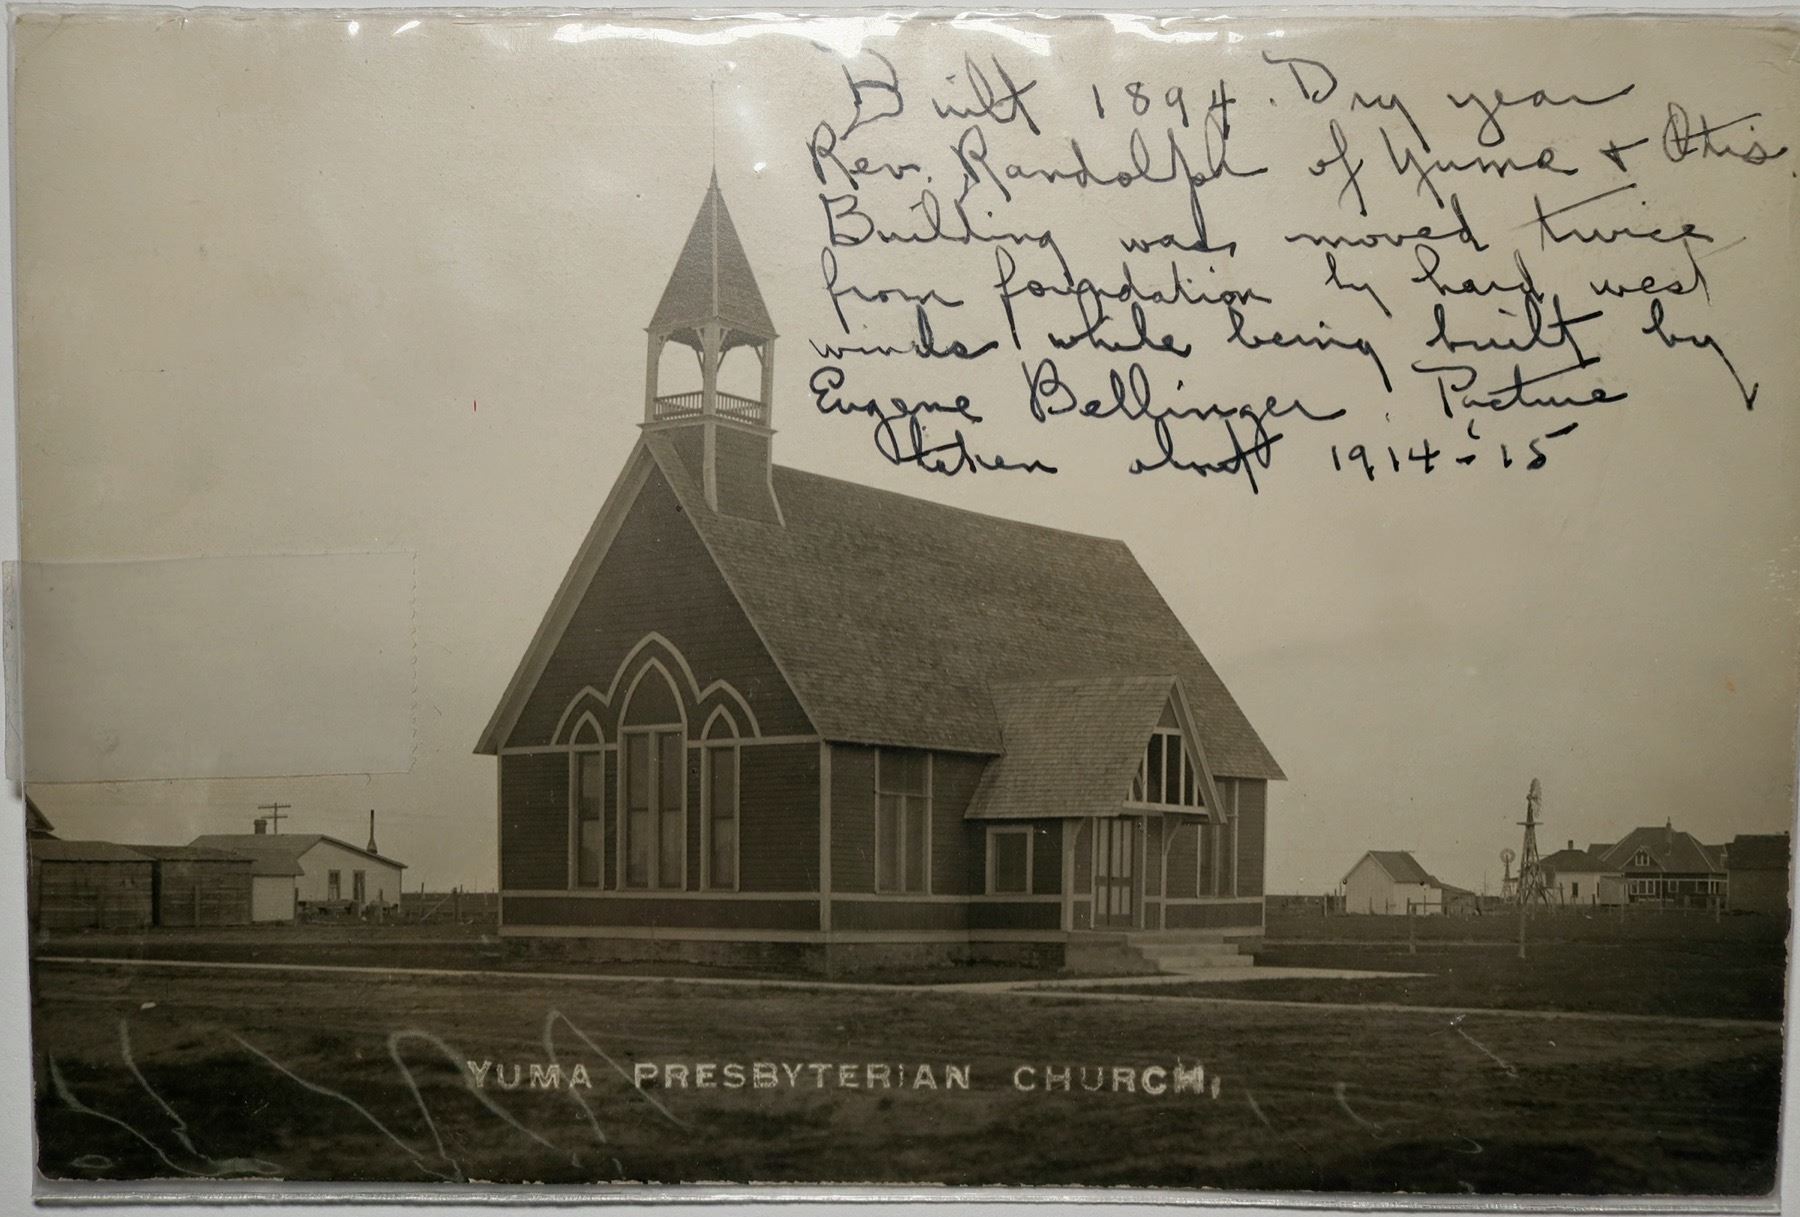 Built 1894. Dry year
Rev. Randolph of Yuma + Otis.
Building was moved twice
from foundation by hard west
winds while being built by
Eugene Bellinger. Picture
taken about 1914-'15
YUMA PRESBYTERIAN CHURCH,